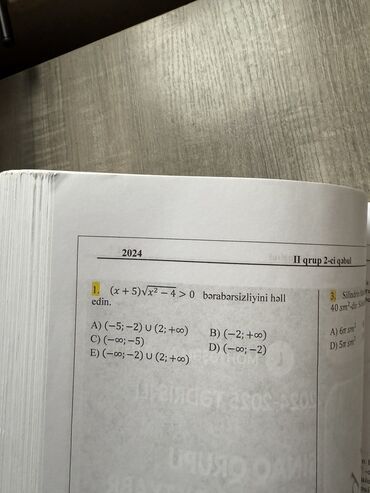 2024
II qrup 2-ci qəbul
1. (x + 5)√x² − 4 > 0 bərabərsizliyini həll
edin.
A) (−5; −2) ∪ (2; +∞) B) (−2; +∞)
C) (−∞; −5) D) (−∞; −2)
E) (−∞; −2) ∪ (2; +∞)
3. Silindrin
40 sm²-dir.
A) 6π sm²
D) 5π sm²